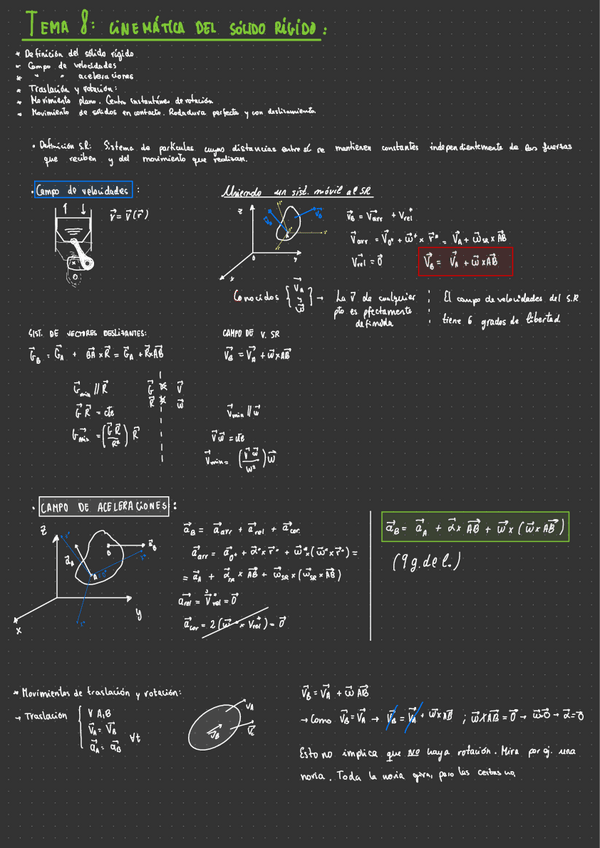 TEMA 8: CINEMÁTICA DEL SÓLIDO RÍGIDO:
* Definición del sólido rígido
* Campo de velocidades
* " " aceleraciones
* Traslación y rotación:
* Movimiento plano. Centro instantáneo de rotación
* Movimiento de sólidos en contacto. Rodadura perfecta y con deslizamiento
• Definición S.R: Sistema de partículas cuyas distancias entre sí se mantienen constantes independientemente de las fuerzas
que reciben y del movimiento que realizan.
• Campo de velocidades:
Uniendo un sist. móvil al SR
v⃗ = v⃗(r⃗)
v⃗B = v⃗arr + vrel
v⃗arr = v⃗o* + ω⃗* × r⃗* = v⃗A + ω⃗SR × AB
v⃗rel = 0⃗
v⃗B = v⃗A + ω⃗ × AB
Conocidos { v⃗A y ω⃗ } → La v⃗ de cualquier
pto es pfectamente
definida
El campo de velocidades del S.R
tiene 6 grados de libertad
SIST. DE VECTORES DESLIZANTES:
CAMPO DE V. SR
G⃗B = G⃗A + BA × R⃗ = G⃗A + R⃗ × AB
v⃗B = v⃗A + ω⃗ × AB
G⃗min // R⃗
G⃗ ⨯ v⃗
R⃗ ⨯ ω⃗
v⃗min // ω⃗
G⃗ R⃗ = cte
v⃗ ω⃗ = cte
G⃗min = (G⃗ R⃗ / R²) R⃗
v⃗min = (v⃗ ω⃗ / ω²) ω⃗
• CAMPO DE ACELERACIONES:
a⃗B = a⃗arr + a⃗rel + a⃗cor
a⃗arr = a⃗o* + α⃗* × r⃗* + ω⃗* (ω⃗* × r⃗*) =
= a⃗A + α⃗SR × AB + ω⃗SR × (ω⃗SR × AB)
a⃗rel = v⃗rel = 0⃗
a⃗cor = 2(ω⃗* × vrel*) = 0⃗
a⃗B = a⃗A + α⃗ × AB + ω⃗ × (ω⃗ × AB)
(9 g. de l.)
z
y
x
* Movimientos de traslación y rotación:
→ Traslación { ∀ A,B
v⃗A = v⃗B
a⃗A = a⃗B ∀t
v⃗B = v⃗A + ω⃗ AB
→ Como v⃗B = v⃗A → v⃗B = v⃗A + ω⃗ × AB ; ω⃗ × AB = 0⃗ → ω⃗ = 0 → α⃗ = 0
Esto no implica que NO haya rotación. Mira por ej. una
noria. Toda la noria gira, pero las cestas no